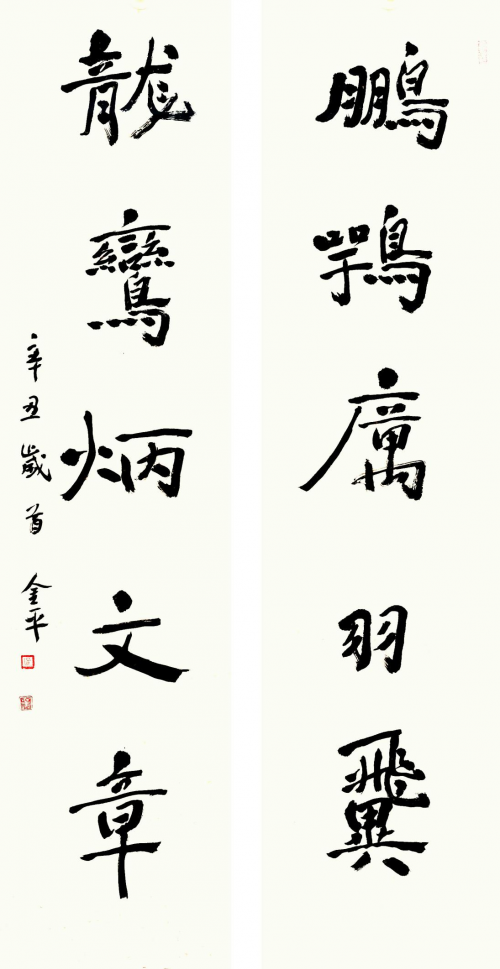 鵬鶚厲羽翼
龍鸞炳文章
辛丑歲首 金平